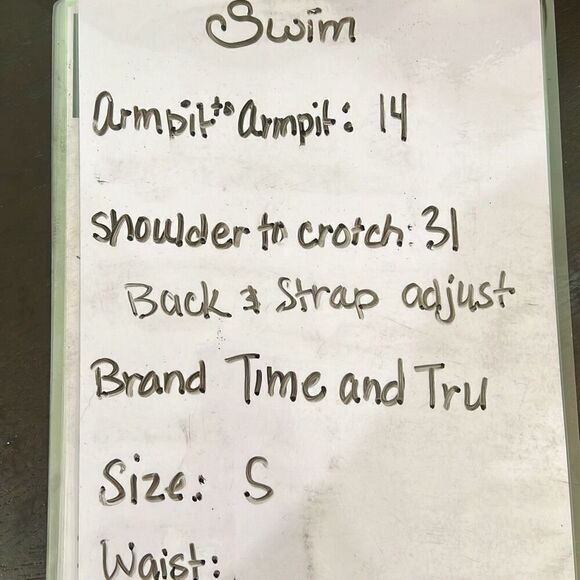 Swim
Armpit to Armpit: 14
Shoulder to crotch: 31
Back & Strap adjust
Brand Time and Tru
Size: S
Waist: